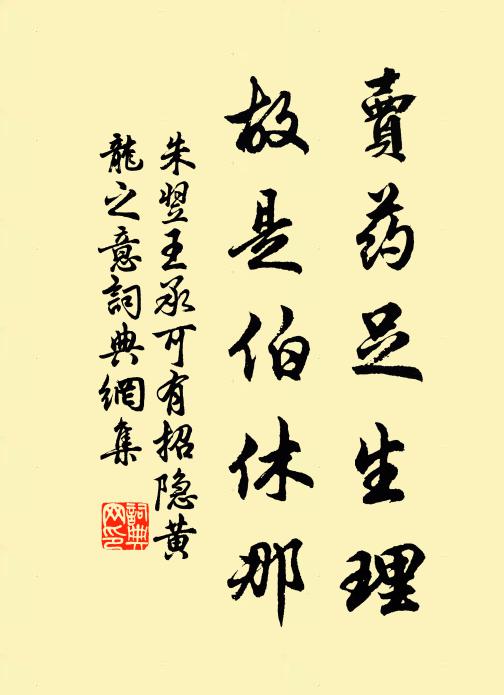 賣药足生理
故是伯休那
朱翌王承可有招隐黄
龍之意詞典網集
詞典
网印